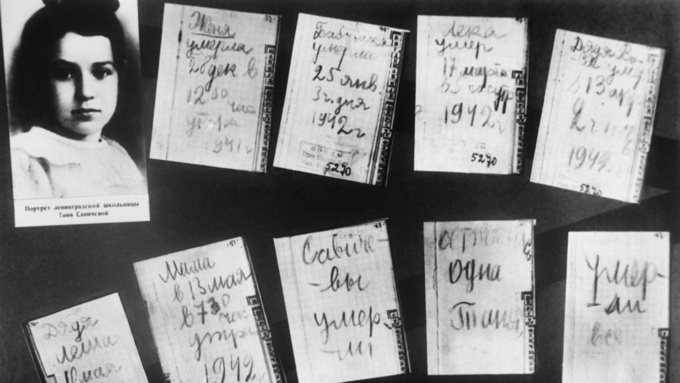 Портрет ленинградской школьницы
Тани Савичевой
Женя
умерла
28 дек в
12 30 час
утра
1941 г
Бабушка
умерла
25 янв
3 ч. дня
1942 г
5270
Лека
умер
17 марта
в 5 час утр
1942 г
5270
Дядя Ва-
ся умер
в 13 апр
2 ч ночь
1942 г
5270
Дядя
Леша
10 мая
Мама
в 13 мая
в 7 30
час
утра
1942
Савиче-
-вы
умер-
-ли
осталась
одна
Таня
умер-
ли
все